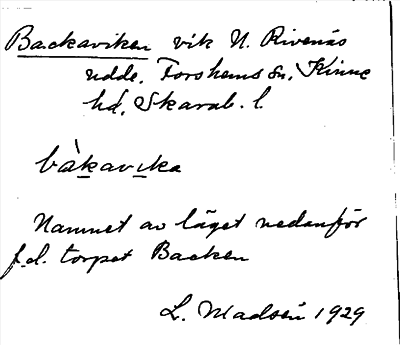 Backaviken vik N. Rivenäs
udde, Forshems sn, Kinne
hd, Skarab. l.
bàkavika
Namnet av läget nedanför
f.d. torpet Backen
L. Madsén 1929